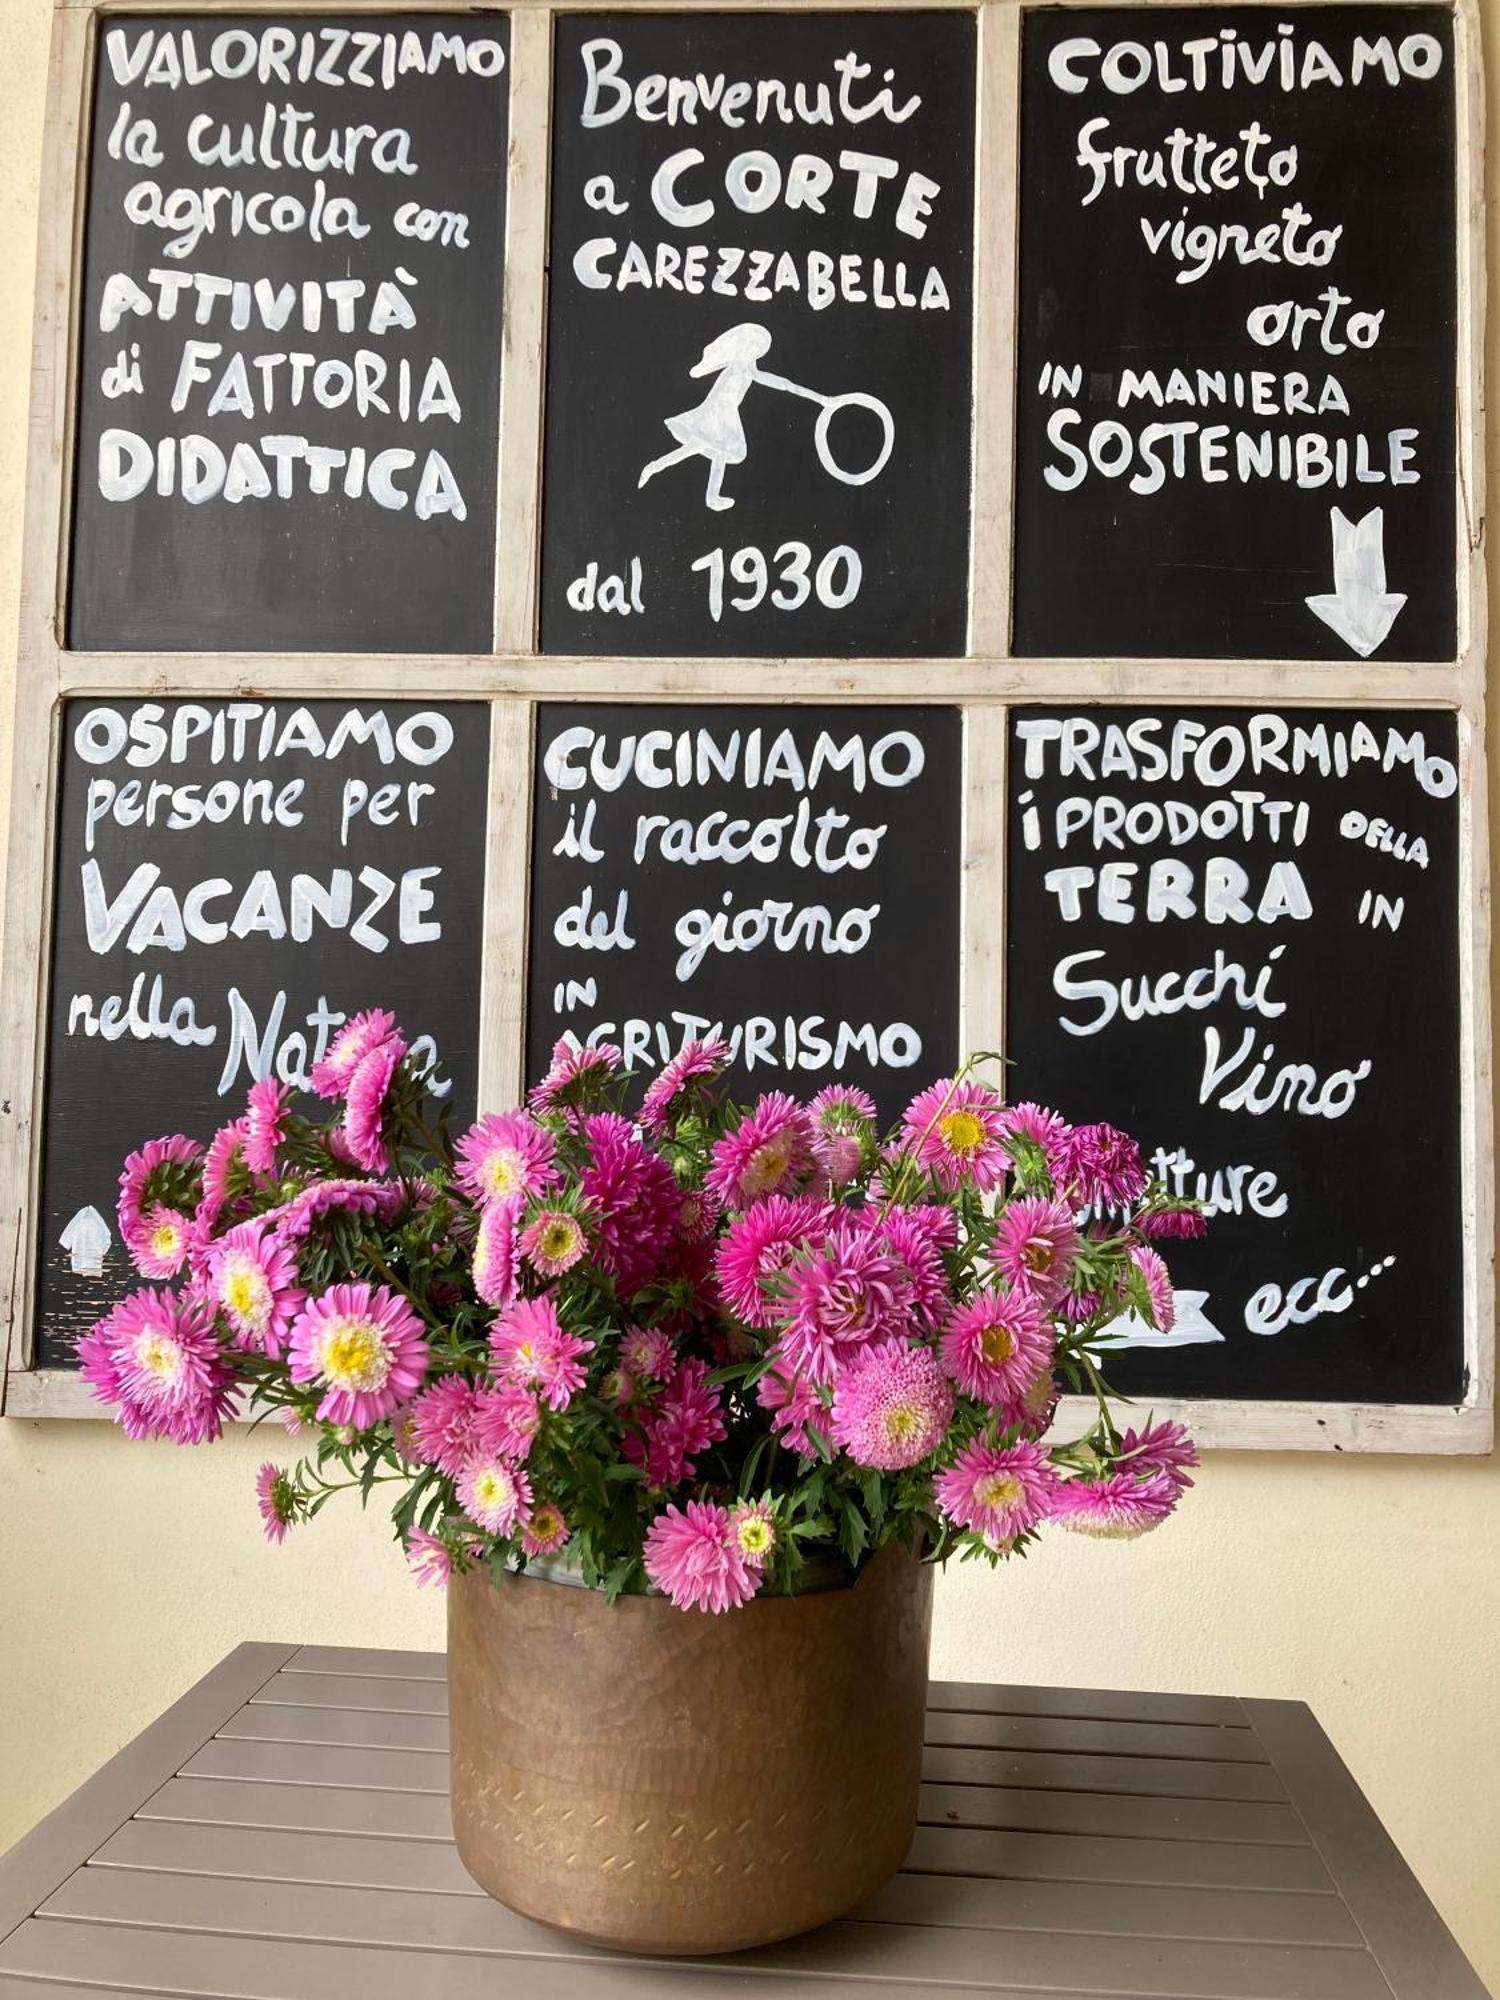 VALORIZZIAMO
la cultura
agricola con
ATTIVITÀ
di FATTORIA
DIDATTICA
Benvenuti
a CORTE
CAREZZABELLA
dal 1930
COLTIVIAMO
frutteto
vigneto
orto
IN MANIERA
SOSTENIBILE
OSPITIAMO
persone per
VACANZE
nella
CUCINIAMO
il raccolto
del giorno
IN
AGRITURISMO
TRASFORMIAMO
i PRODOTTI DELLA
TERRA IN
Succhi
Vino
ecc...